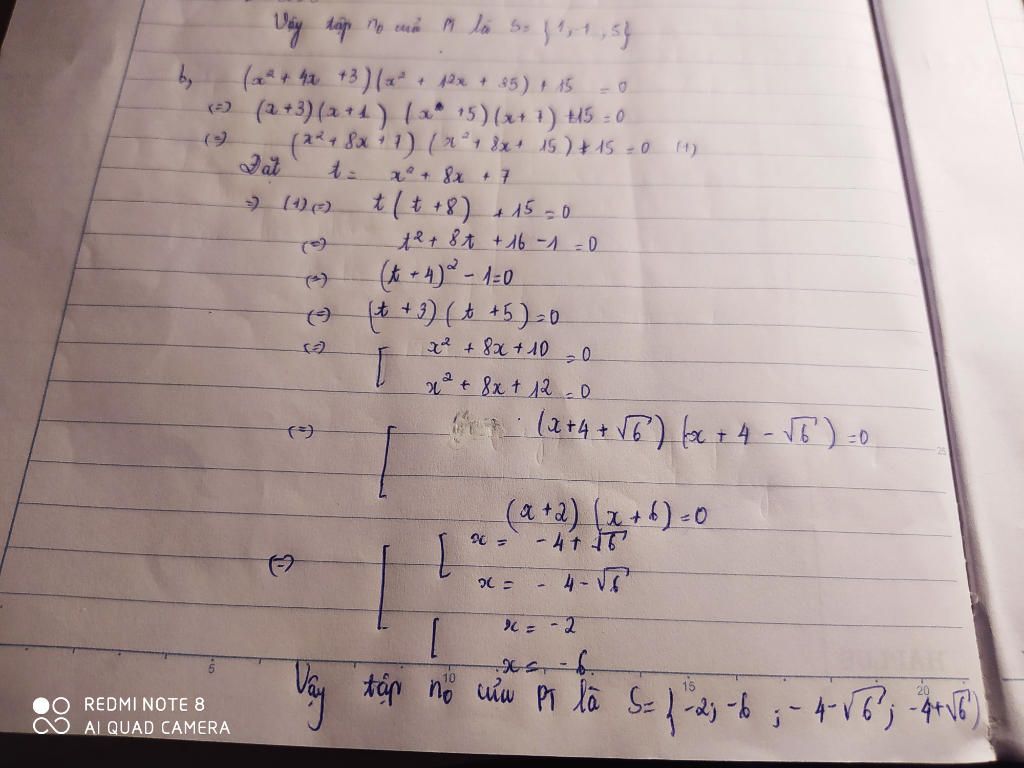 Vậy tập no của pt là S= {1,-1,5}
b, (x² + 4x +3)(x² + 12x + 35) + 15 =0
(=) (x+3)(x+1) (x +5)(x+7) +15=0
(=) (x²+8x+7) (x²+8x+ 15)+15=0 (1)
Đặt t= x²+8x+7
=> (1)(=) t(t+8) +15=0
(=) t²+8t+16-1=0
(=) (t+4)²-1=0
(=) (t+3)(t+5)=0
(=) [ x²+8x+10=0
x²+8x+12=0
(=) [ (x+4+√6)(x+4-√6)=0
(x+2)(x+6)=0
(=) [ [ x= -4+√6
x= -4-√6
[ x=-2
x=-6
5 10 15 20 25
Vậy tập no của pt là S={-2;-6;-4-√6;-4+√6}
REDMI NOTE 8
AI QUAD CAMERA